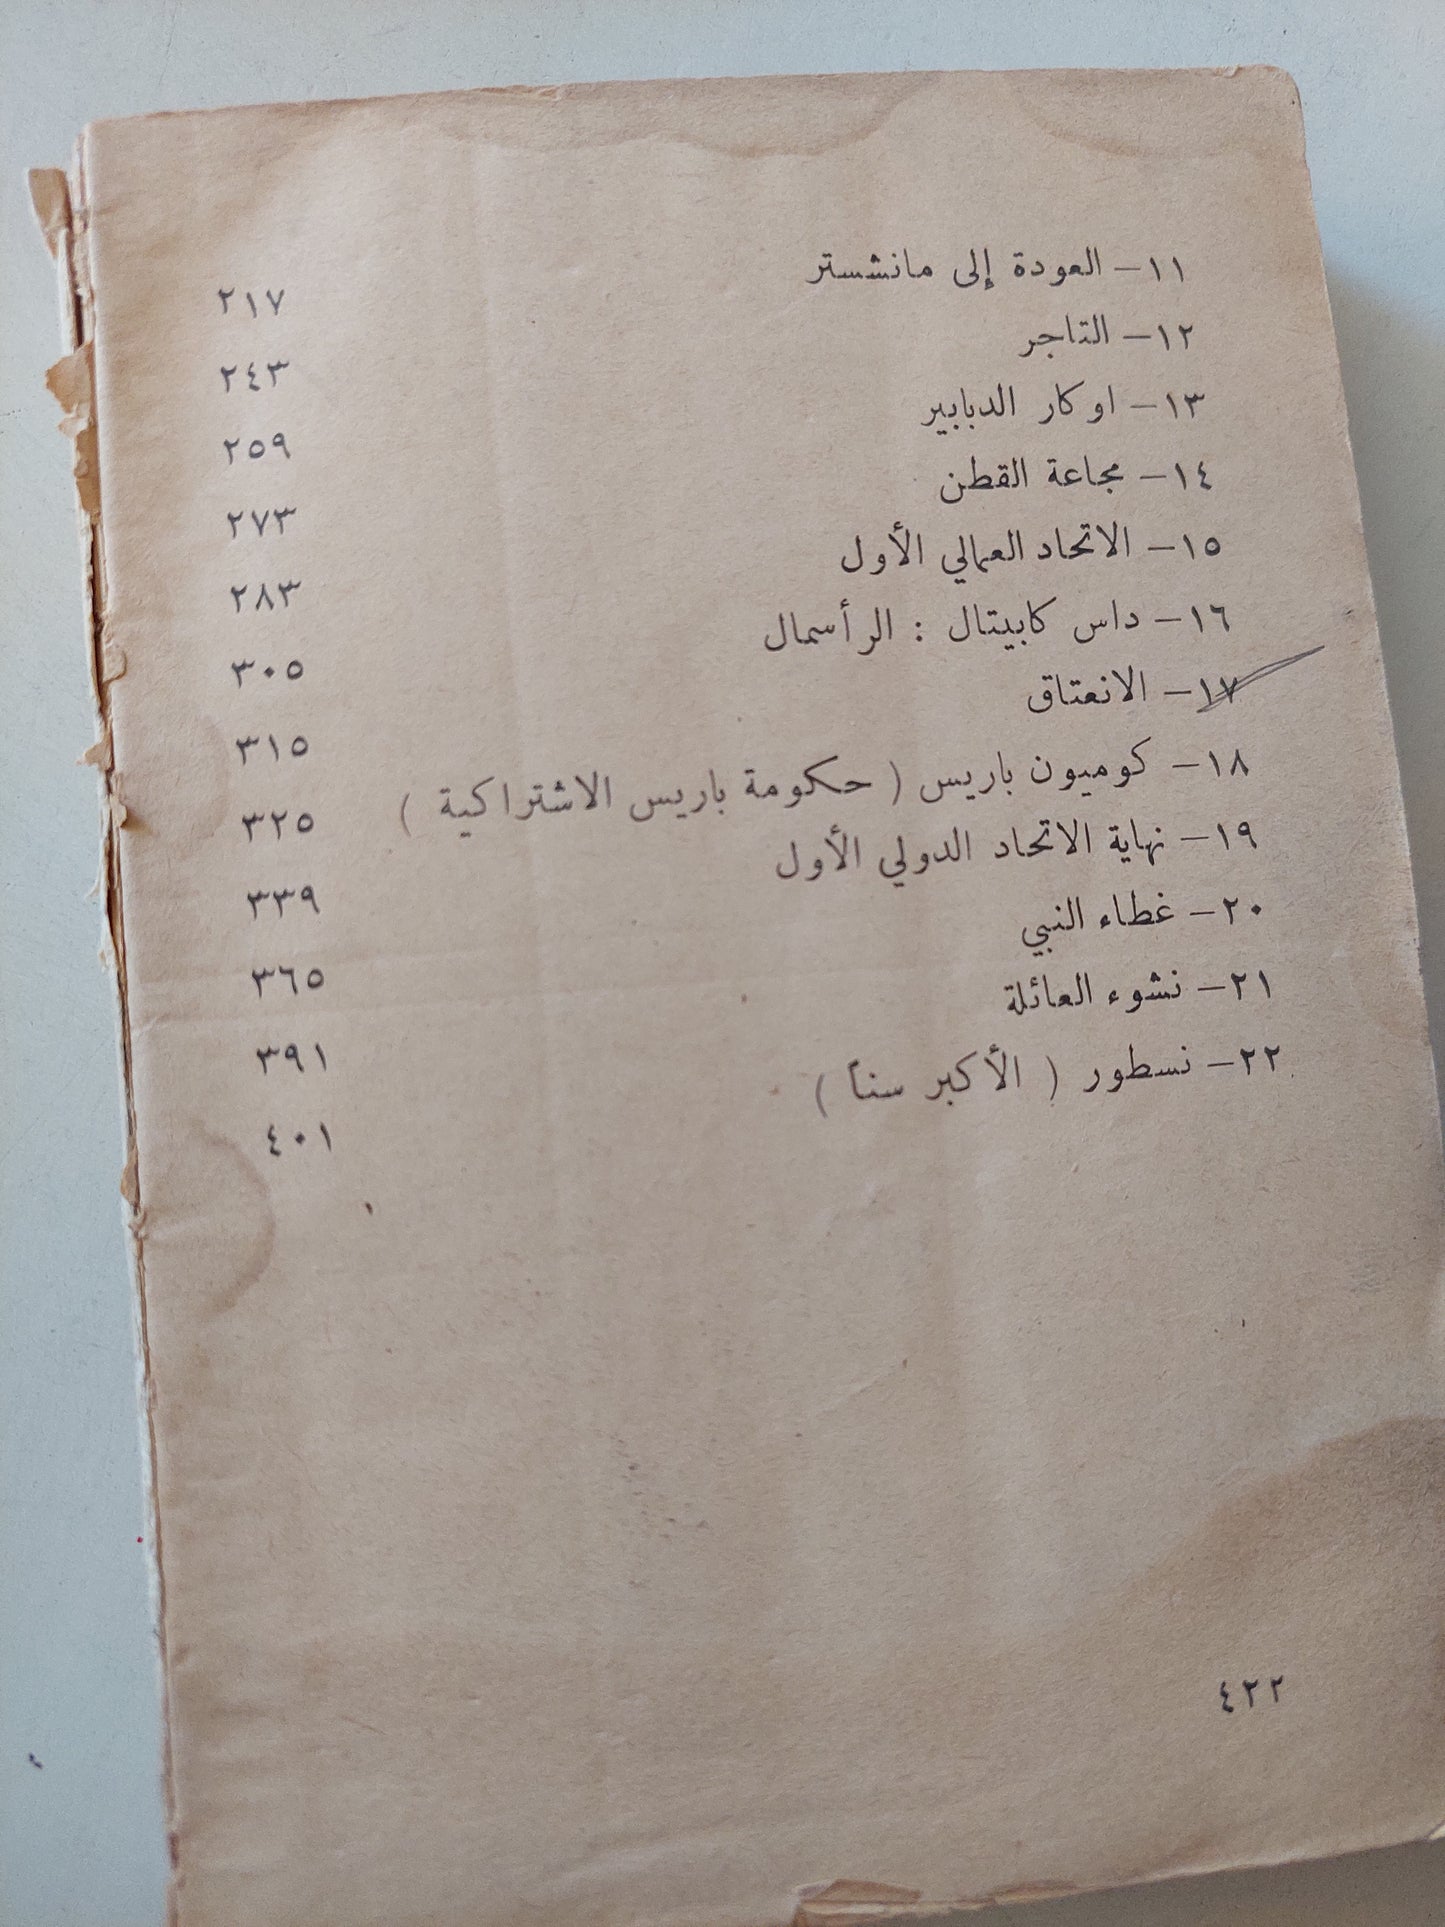 ١١ – العودة إلى مانشستر ٢١٧
١٢ – التاجر ٢٤٣
١٣ – اوكار الدبابير ٢٥٩
١٤ – مجاعة القطن ٢٧٣
١٥ – الاتحاد العمالي الأول ٢٨٣
١٦ – داس كابيتال : الرأسمال ٣٠٥
١٧ – الانعتاق ٣١٥
١٨ – كوميون باريس ( حكومة باريس الاشتراكية ) ٣٢٥
١٩ – نهاية الاتحاد الدولي الأول ٣٣٩
٢٠ – غطاء النبي ٣٦٥
٢١ – نشوء العائلة ٣٩١
٢٢ – نسطور ( الأكبر سناً ) ٤٠١
٤٢٢